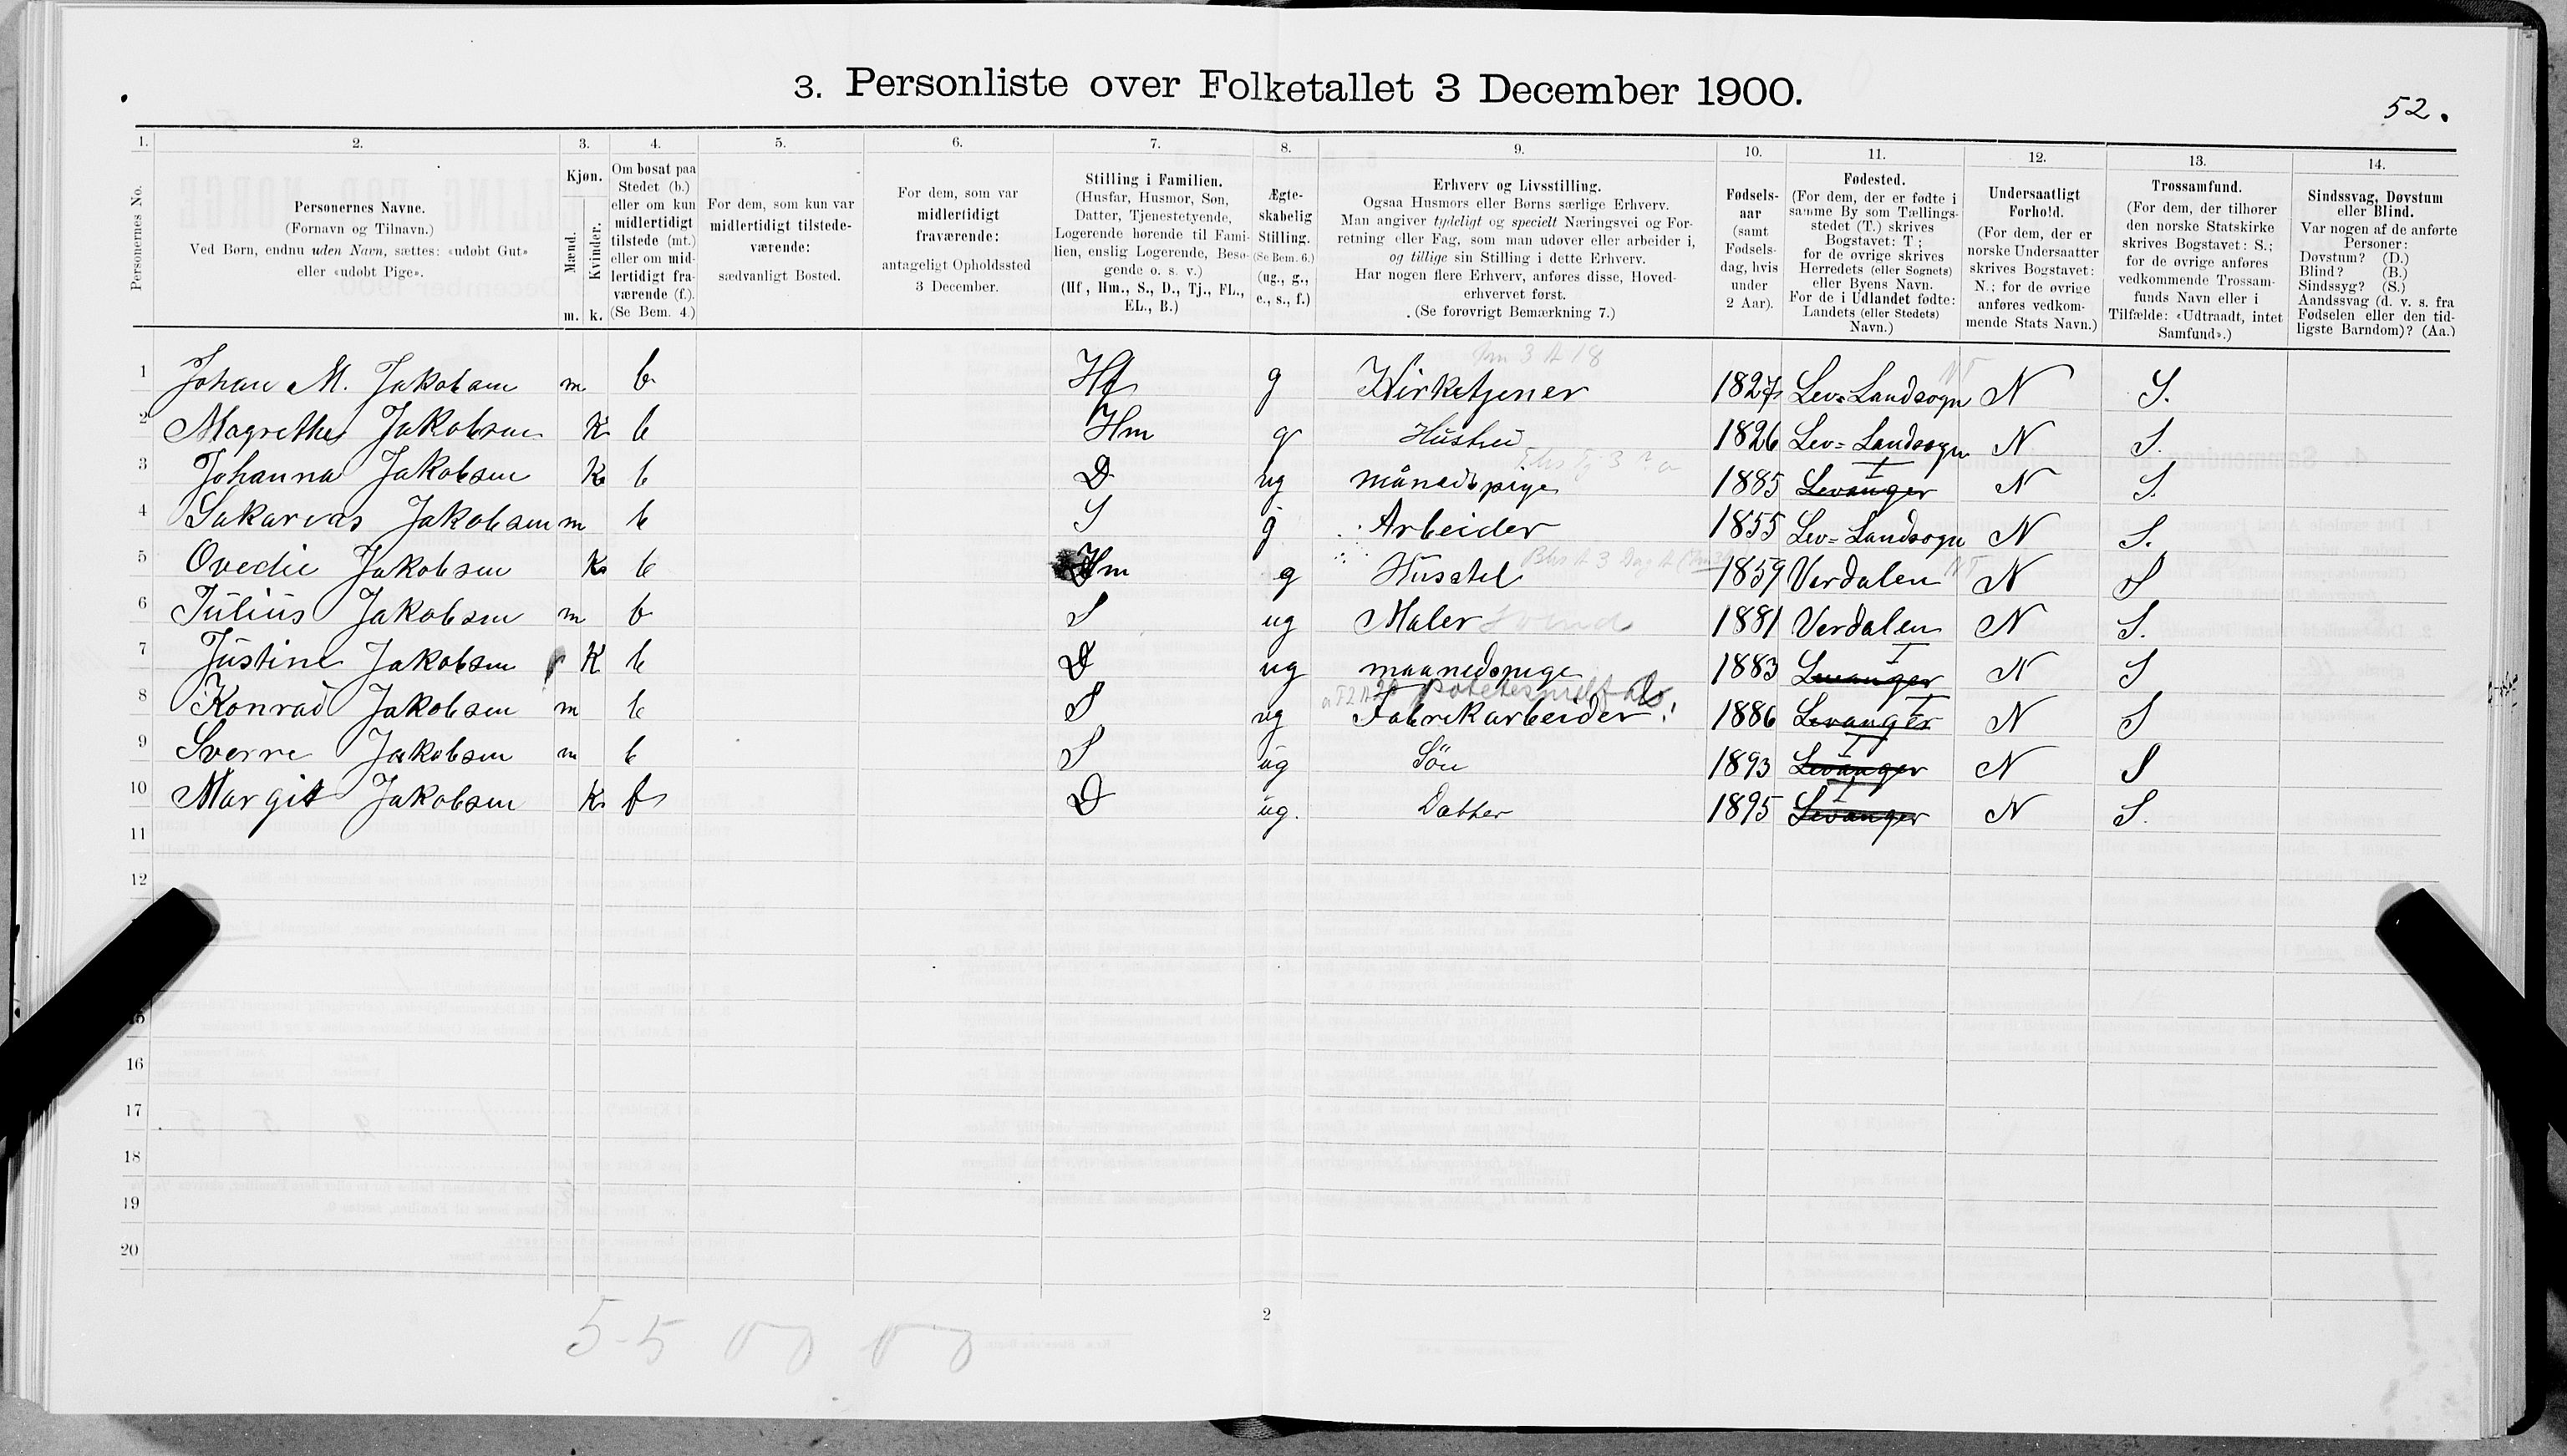 3. Personliste over Folketallet 3 December 1900.
52.
1. 2. 3. 4. 5. 6. 7. 8. 9. 10. 11. 12. 13. 14.
Personernes No.
Personernes Navne.
(Fornavn og Tilnavn.)
Ved Børn, endnu uden Navn, sættes: «udøbt Gut»
eller «udøbt Pige».
Kjøn.
Mænd.
Kvinder.
m. k.
Om bosat paa
Stedet (b.)
eller om kun
midlertidigt
tilstede (mt.)
eller om mid-
lertidigt fra-
værende (f.).
(Se Bem. 4.)
For dem, som kun var
midlertidigt tilstede-
værende:
sædvanligt Bosted.
For dem, som var
midlertidigt
fraværende:
antageligt Opholdssted
3 December.
Stilling i Familien.
(Husfar, Husmor, Søn,
Datter, Tjenestetyende,
Logerende hørende til Fami-
lien, enslig Logerende, Besø-
gende o. s. v.)
(Hf., Hm., S., D., Tj., FL.,
EL., B.)
Ægte-
skabelig
Stilling.
(Se Bem. 6.)
(ug., g.,
e., s., f.)
Erhverv og Livsstilling.
Ogsaa Husmors eller Børns særlige Erhverv.
Man angiver tydeligt og specielt Næringsvei og For-
retning eller Fag, som man udøver eller arbeider i,
og tillige sin Stilling i dette Erhverv.
Har nogen flere Erhverv, anføres disse, Hoved-
erhvervet først.
(Se forøvrigt Bemærkning 7.)
Fødsels-
aar
(samt
Fødsels-
dag, hvis
under
2 Aar).
Fødested.
(For dem, der er fødte i
samme By som Tællings-
stedet (T.) skrives
Bogstavet: T;
for de øvrige skrives
Herredets (eller Sognets)
eller Byens Navn.
For de i Udlandet fødte:
Landets (eller Stedets)
Navn.)
Undersaatligt
Forhold.
(For dem, der er
norske Undersaatter
skrives Bogstavet:
N.; for de øvrige
anføres vedkom-
mende Stats Navn.)
Trossamfund.
(For dem, der tilhører
den norske Statskirke
skrives Bogstavet: S.;
for de øvrige anføres
vedkommende Trossam-
funds Navn eller i
Tilfælde: «Udtraadt, intet
Samfund».)
Sindssvag, Døvstum
eller Blind.
Var nogen af de anførte
Personer:
Døvstum? (D.)
Blind? (B.)
Sindssyg? (S.)
Aandssvag (d. v. s. fra
Fødselen eller den tid-
ligste Barndom)? (Aa.)
1 Johan M. Jakobsen m b Hf g Kirketjener 1827 Lev= Landsogn N S.
2 Magrethe Jakobsen K b Hm g Hustru 1826 Lev= Landsogn N S.
3 Johanna Jakobsen K b D ug månedspige 1885 Levanger T N S.
4 Sakarias Jakobsen m b S g Arbeider 1855 Lev= Landsogn N S.
5 Ovedie Jakobsen K b Hm g Husstel 1859 Verdalen N S
6 Julius Jakobsen m b S ug Maler Svend 1881 Verdalen N S.
7 Justine Jakobsen K b D ug maanedspige 1883 Levanger T N S
8 Konrad Jakobsen m b S ug Fabrikarbeider 1886 Levanger T N S
9 Sverre Jakobsen m b S ug Sön 1893 Levanger T N S
10 Margit Jakobsen K b D ug. Datter 1895 Levanger T N S.
11
12
16
17
18
19
20
2
5-5 0 0 0 0